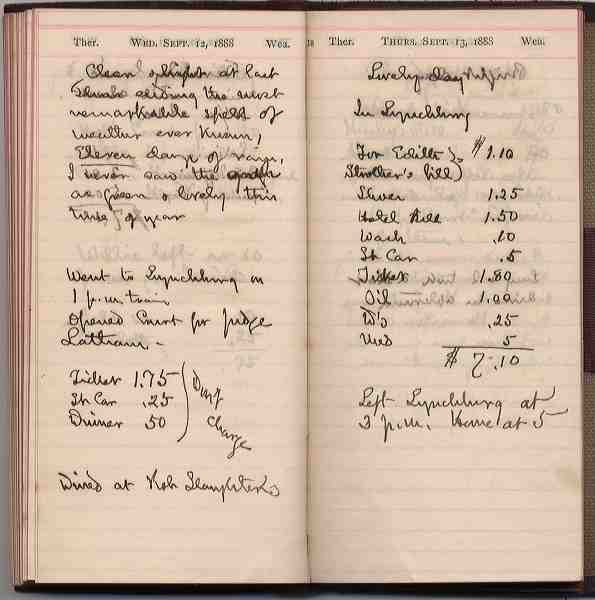 Ther. WED. SEPT. 12, 1888 Wea.
Clear & bright at last
ending the most
remarkable spell of
weather ever known,
Eleven days of rain,
I never saw the
as green & lovely this
time of year
Went to Lynchburg on
1 p.m. train
Opened Court for Judge
Latham -
Ticket 1.75
St Car .25
Dinner 50
Don't
Charge
Dined at Rob Slaughters
Ther. THURS. SEPT. 13, 1888 Wea.
Lovely day
In Lynchburg
For Edith $1.10
Strother's bill)
1.25
Hotel Bill 1.50
Wash .10
St Car .5
Ticket 1.80
Oil 1.00
.25
5
$ 7.10
Left Lynchburg at
3 p.m. Home at 5